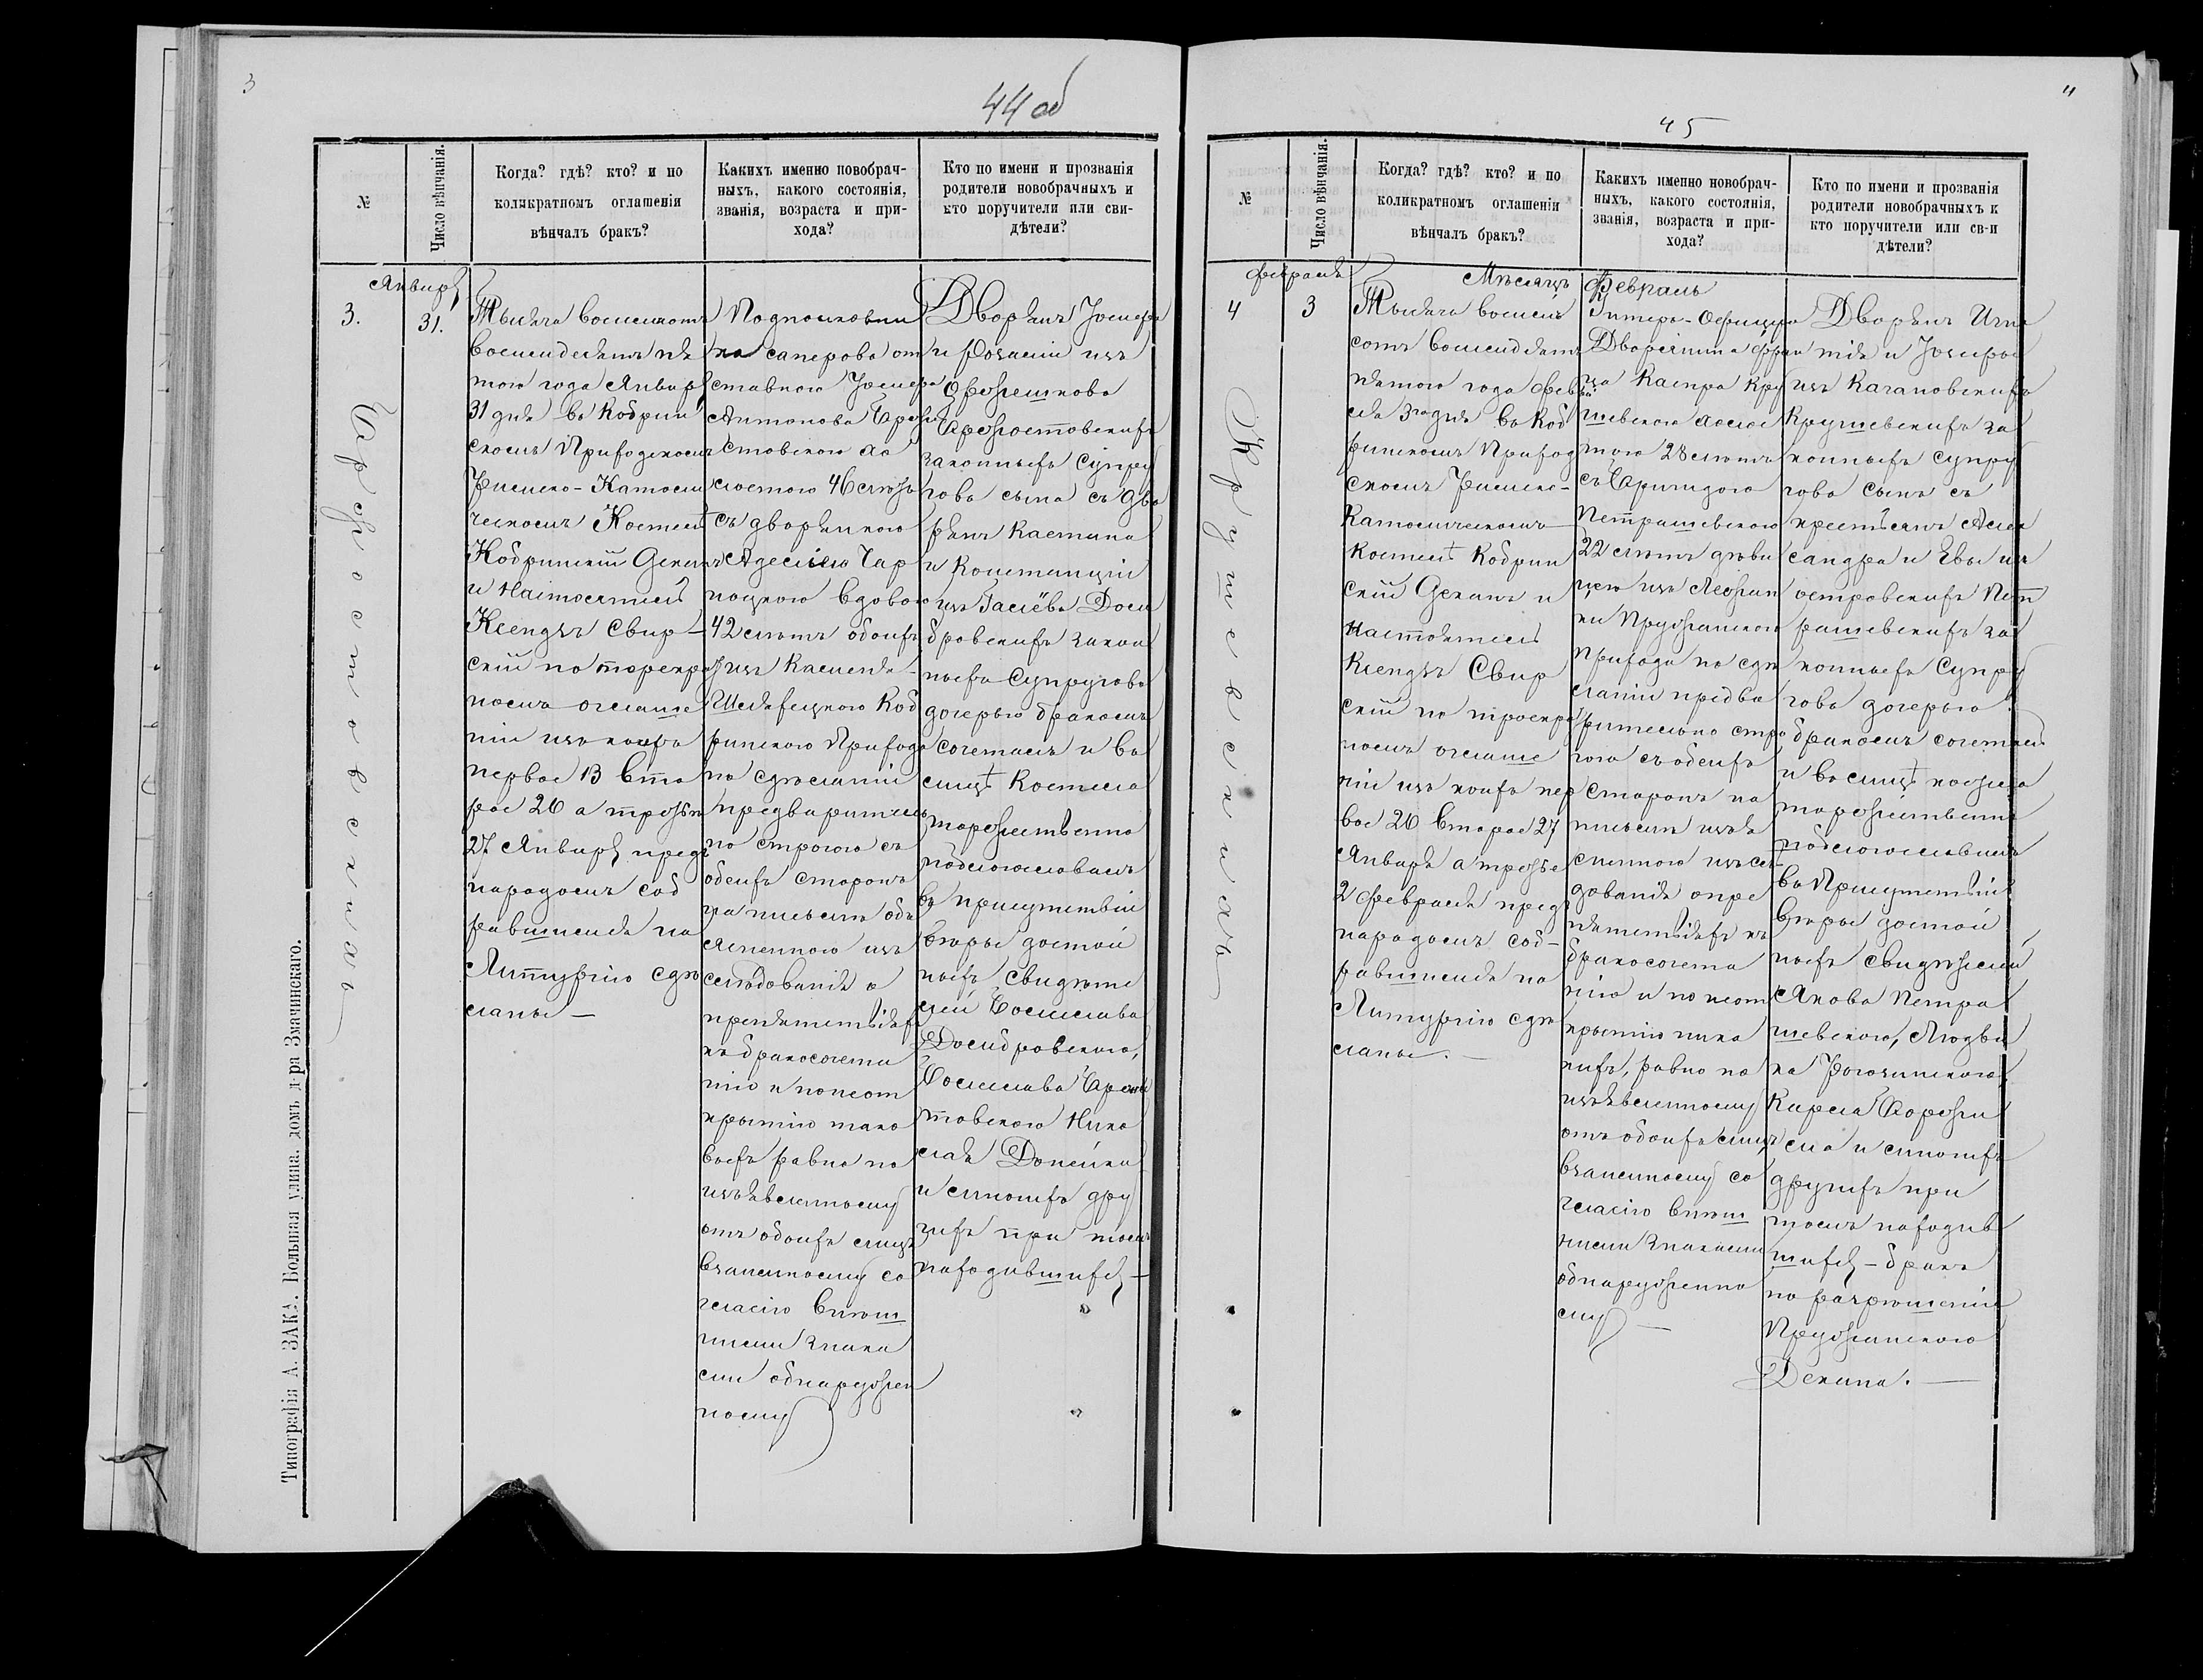 3
44 об
№
Число вѣнчанія.
Когда? гдѣ? кто? и по
коликратномъ оглашеніи
вѣнчалъ бракъ?
Какихъ именно новобрач-
ныхъ, какого состоянія,
званія, возраста и при-
хода?
Кто по имени и прозванія
родители новобрачныхъ и
кто поручители или сви-
дѣтели?
Январь
3.
31.
Тысяча восемьсотъ
восемдесятъ пя
того года Января
31 дня въ Кобрин
скомъ Приходскомъ
Римско-Католи
ческомъ Костелѣ
Кобринскій Деканъ
и Настоятель
Ксендзъ Свир-
скій по троекра
номъ оглаше
ніи изъ коихъ
первое 13 вто
рое 20 а третье
27 Января предъ
народомъ соб
равшимся на
Литургію сдѣ
ланы —
Подполковни
ка саперова от
ставного Іосифа
Антонова
стовского хо
лостого 46 лѣтъ
съ дворянкою
Аделією Чар
ноцкою вдовою
42 лѣтъ обоихъ
изъ Каменя-
Шляхецкого Коб
ринского Прихода
по сдѣланіи
предваритель
но строгого съ
обеихъ сторонъ
на письмѣ объ
ясненного из
слѣдованія о
препятствіяхъ
къ бракосочета
нію и по неот
крытію тако
выхъ равно по
изъявленному
отъ обоихъ лицъ
взаимному со
гласію внѣш
ними знака
ми обнаружен
ному
Дворянъ Іосифа
и Розаліи изъ
законныхъ супру
говъ сына съ дво
рянъ Каетана
и Констанціи
изъ Домб
бровскихъ закон
ныхъ супруговъ
дочерью бракомъ
сочеталъ и въ
лицѣ Костела
торжественно
поблогословилъ
въ присутствіи
вѣры достой
ныхъ свидѣте
лей Болеслава
Домбровского,
Болеслава
товского Нико
лая
и многихъ дру
гихъ при томъ
находившихся —
Типографія А. ЗАКА. Большая улица, домъ д-ра Змачинскаго.
11
45
№
Число вѣнчанія.
Когда? гдѣ? кто? и по
коликратномъ оглашеніи
вѣнчалъ бракъ?
Какихъ именно новобрач-
ныхъ, какого состоянія,
званія, возраста и при-
хода?
Кто по имени и прозванія
родители новобрачныхъ к
кто поручители или св-и
дѣтели?
Февраля
Мѣсяцъ Февраль
4
3
Крушевскихъ
Тысяча восемь
сотъ восемдесятъ
пятого года Февра
ля 3го дня въ Коб
ринскомъ Приход
скомъ Римско-
Католическомъ
Костелѣ Кобрин
скій Деканъ и
Настоятель
Ксендзъ Свир
скій по троекра
номъ оглаше
ніи изъ коихъ пер
вое 20 второе 27
Января а третье
2 Февраля предъ
народомъ соб-
равшимся на
Литургію сдѣ
ланы. —
Унтеръ-Офицера
Дворянина Фран
ца Каспра Кру
шевского холос
того 28 лѣтъ
съ Бригидою
Петрашевскою
22 лѣтъ дѣви
цею изъ
ки Пружанского
Прихода по сдѣ
ланіи предва
рительно стро
гого съ обеихъ
сторонъ на
письмѣ изъя
сненного изслѣ
дованія о пре
пятствіяхъ къ
бракосочета
нію и по неот
крытію ника
кихъ, равно по
изъявленному
отъ обоихъ лицъ
взаимному со
гласію внѣш
ними знаками
обнаруженно
му —
Дворянъ Игна
тія и Іозефы
изъ Качановскихъ
Крушевскихъ за
конныхъ супру
говъ сынъ съ
крестьянъ Алек
сандра и Евы изъ
Островскихъ Пет
рашевскихъ за
конныхъ супру
говъ дочерью
бракомъ сочеталъ
и въ лицѣ костела
торжественно
поблогословилъ
въ Присутствіи
вѣры достой
ныхъ свидѣтелей
Якова Петра
шевского, Людви
ка Рогозинского
Карла
ла и многихъ
другихъ при
томъ находив
шихся — бракъ
по разрѣшенію
Пружанского
Декана. —